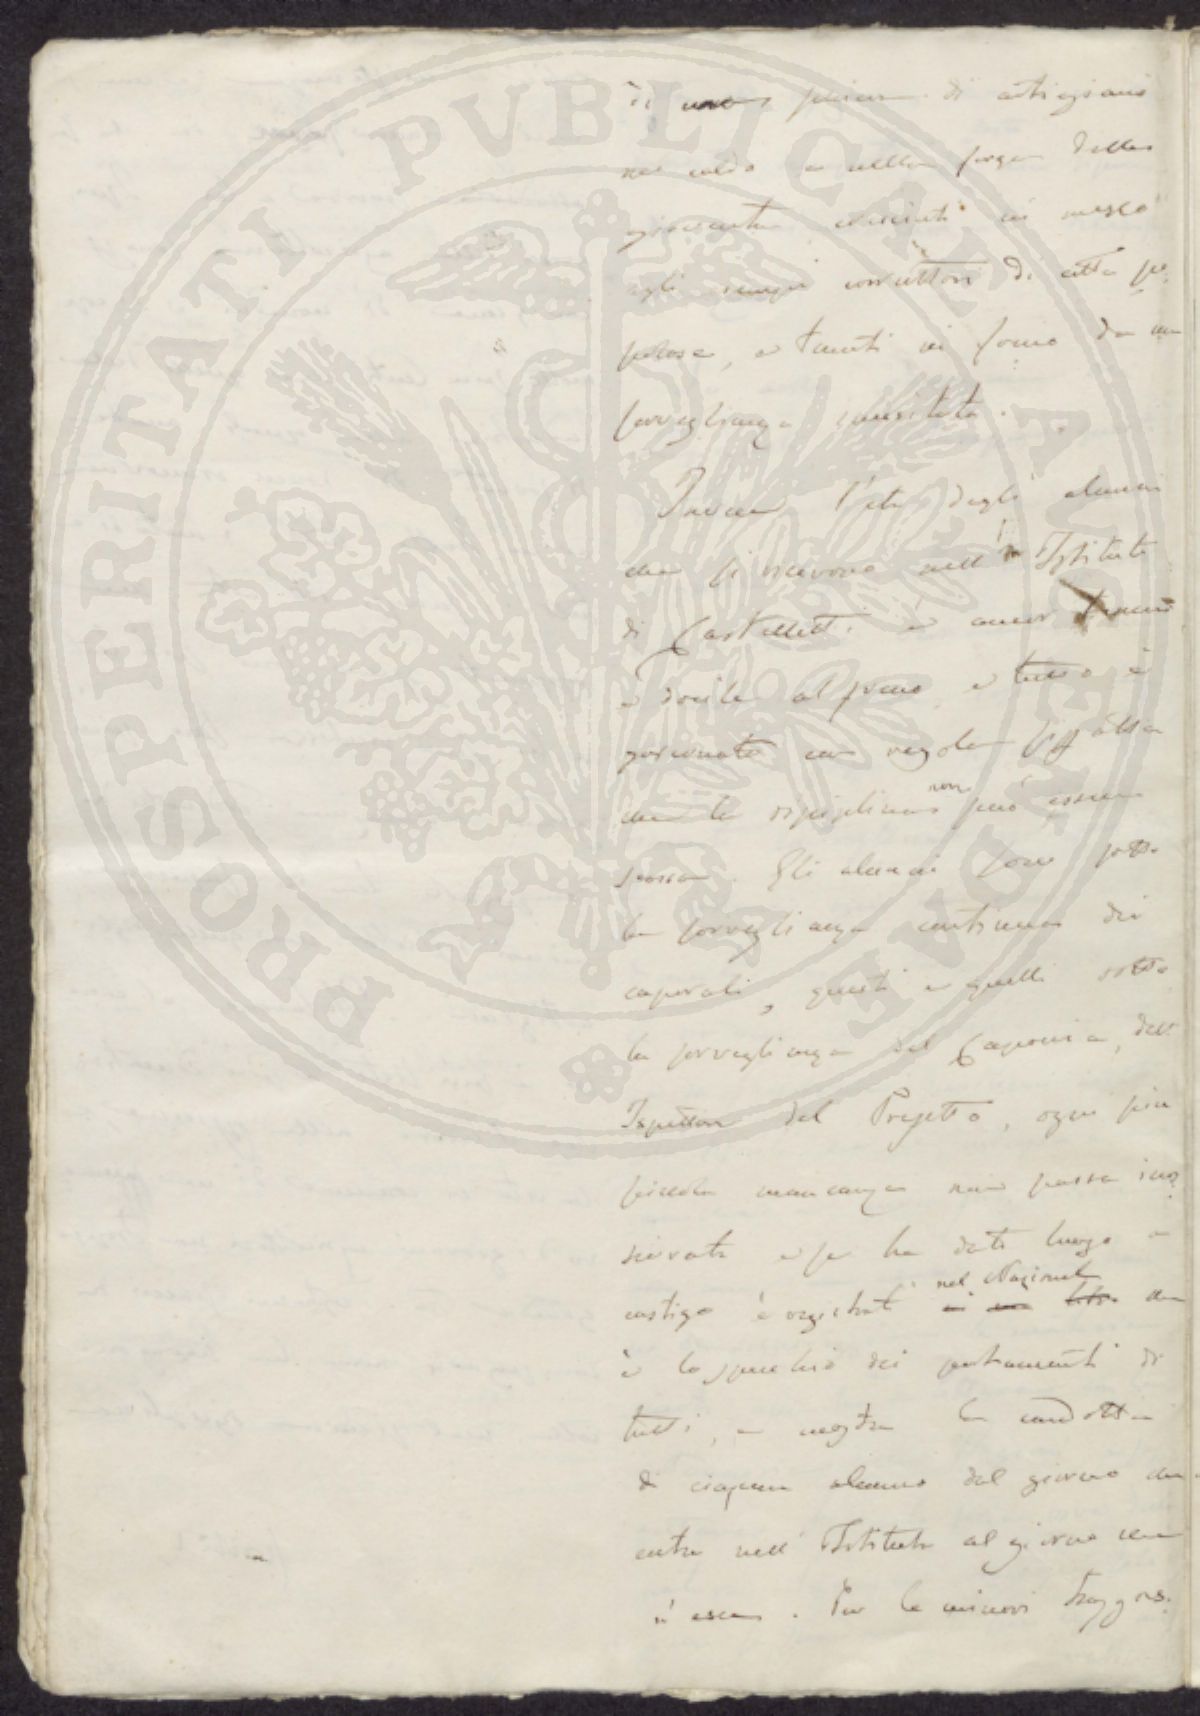 PROSPERITATI PVBLICAE AVGENDAE
di artigiani
nel caldo e nella forza della
cresciuti in mezzo
agli esempi corruttori di città po
polose, e tenuti in freno da una
sorveglianza
Invece l'età degli alunni
che si ricevono nell' Istituto
di Castelletti è ancor tenera
e docile al freno, e tutto è
governato con regola siffatta
che la disciplina non può essere
scossa. Gli alunni sono sotto
la sorveglianza continua dei
caporali, questi e quelli sotto
la sorveglianza del Caposcia, dell'
Ispettore del Prefetto, ogni più
piccola mancanza non passa inos
servata e se ha dato luogo a
castigo è registrata nel Razionale che
è lo specchio dei portamenti di
tutti, e mostra la condotta
di ciascun alunno dal giorno che
entra nell' Istituto al giorno che
n'esce. Per le minori trasgres